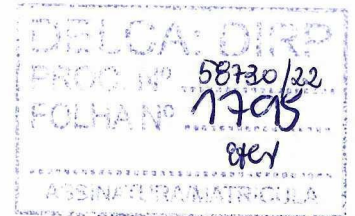 DELCA: DIRP
PROC. Nº 58730/22
FOLHA Nº 1795
ASSINATURA/MATRICULA